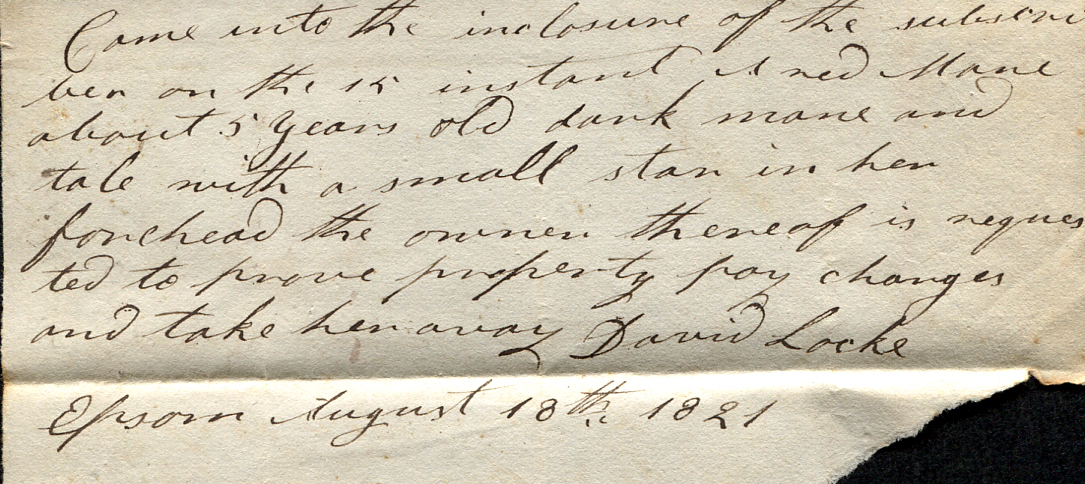 Came into the inclosure of the subscri
ber on the 15 instant A red Mare
about 5 years old dark mane and
tale with a small star in her
forehead the owner thereof is reques
ted to prove property pay charges
and take her away David Locke
Epsom August 18th 1821